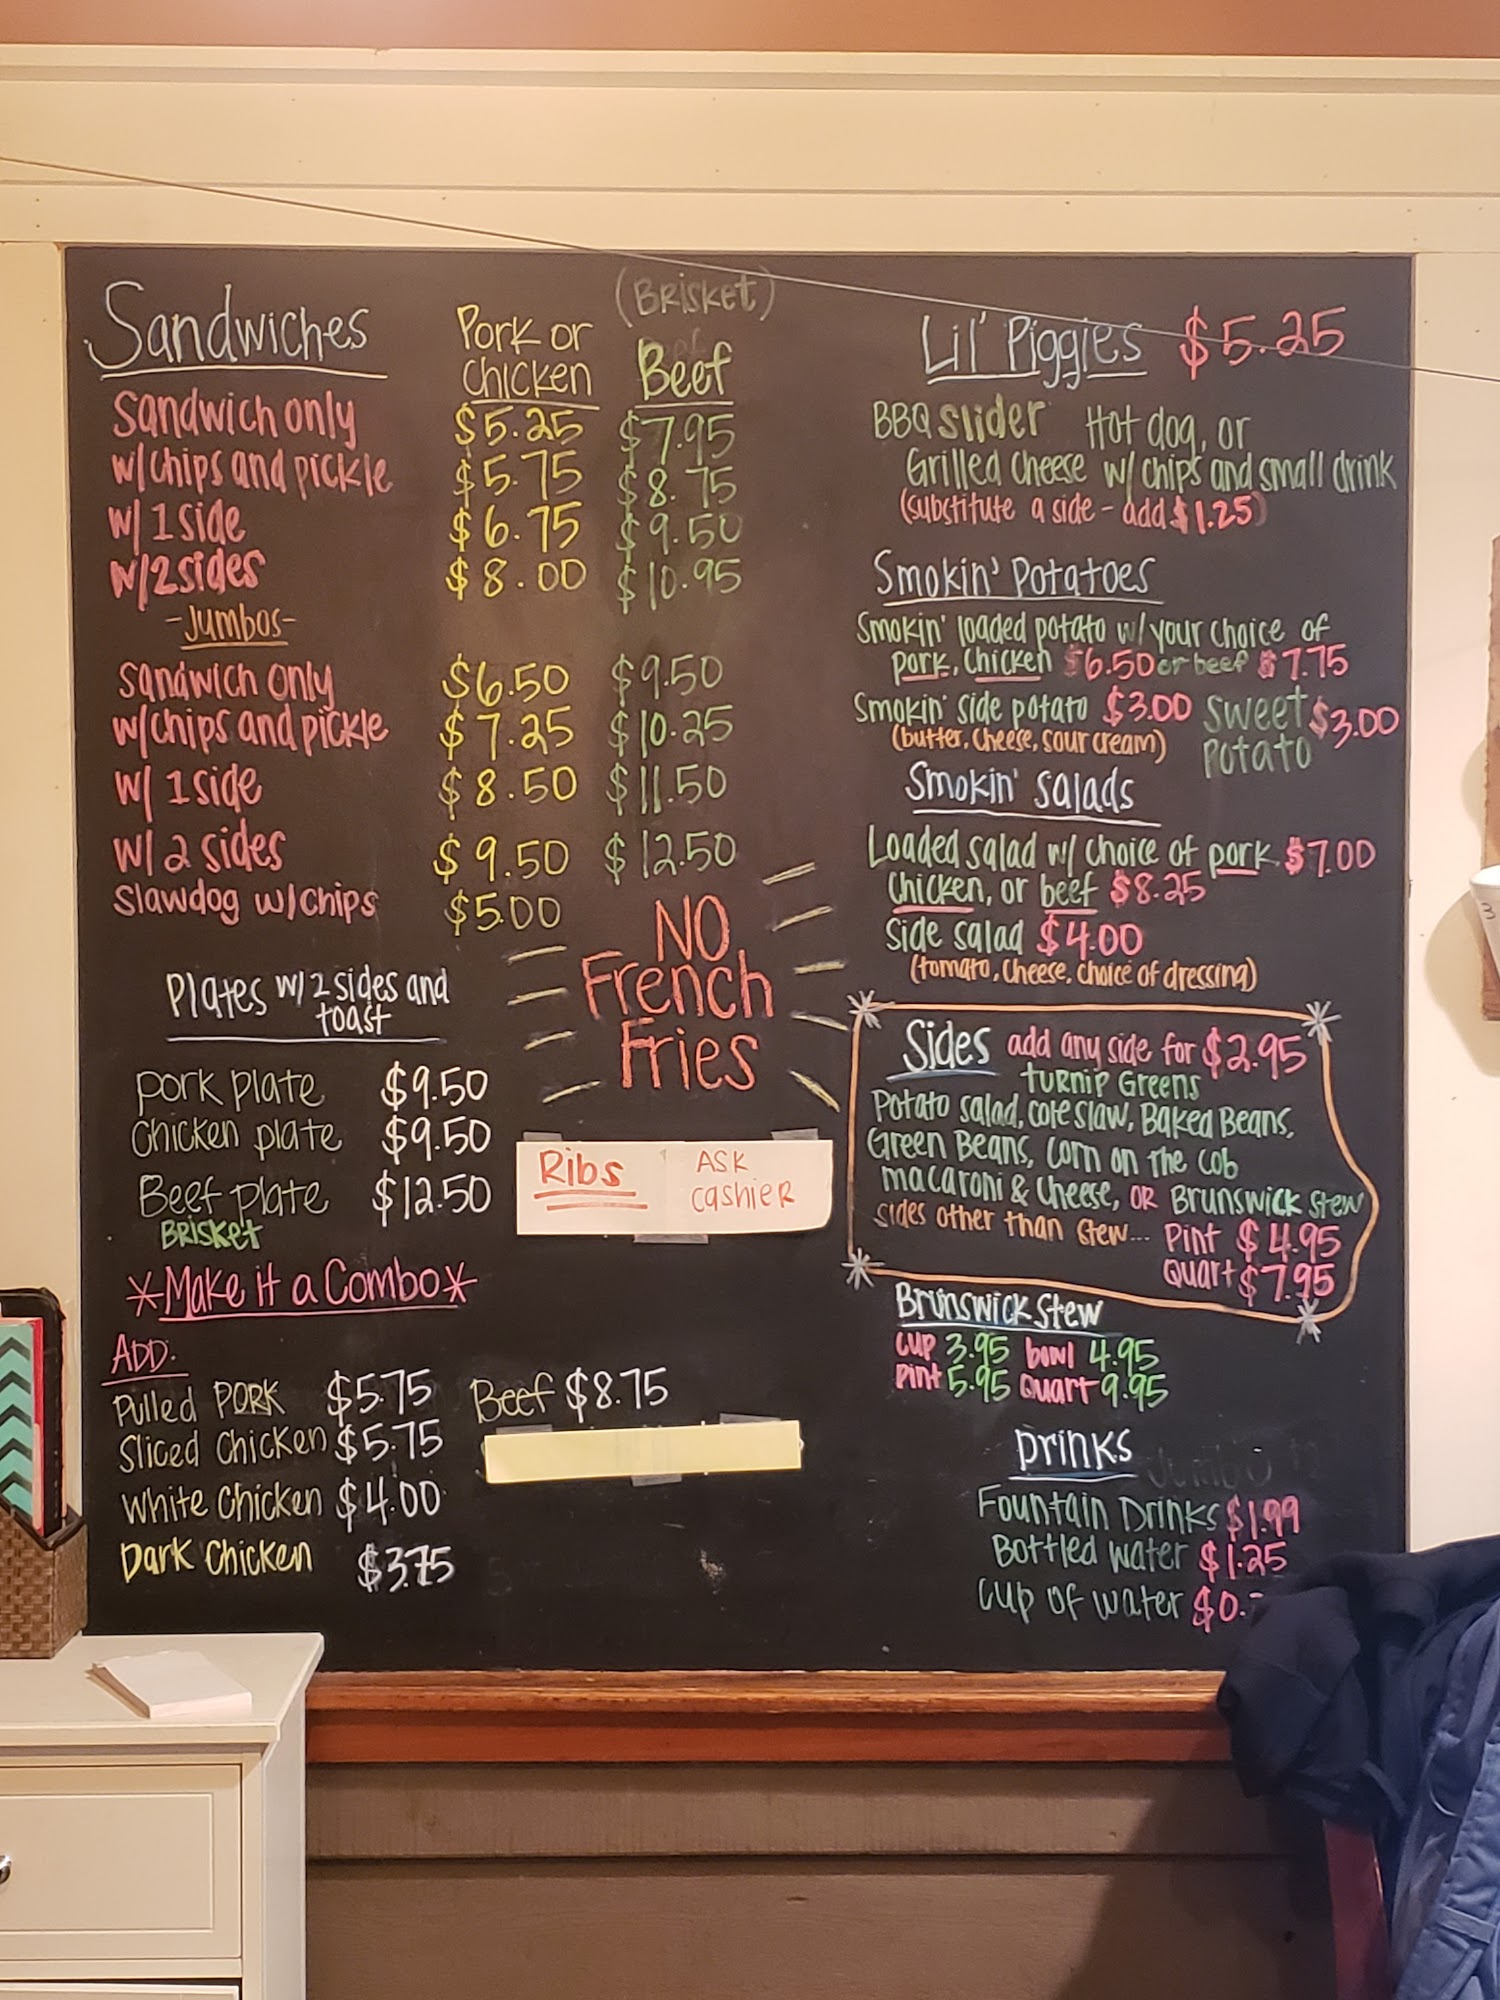 Sandwiches
Pork or Chicken
(Brisket)
Beef
Sandwich only $5.25 $7.95
w/chips and pickle $5.75 $8.75
w/ 1 side $6.75 $9.50
w/2 sides $8.00 $10.95
-Jumbos-
Sandwich only $6.50 $9.50
w/chips and pickle $7.25 $10.25
w/ 1 side $8.50 $11.50
w/ 2 sides $9.50 $12.50
Slawdog w/chips $5.00
NO
French
Fries
Plates w/2 sides and
toast
Pork plate $9.50
Chicken plate $9.50
Beef plate $12.50
Brisket
Ribs
ASK
cashier
*Make it a Combo*
ADD:
Pulled PORK $5.75 Beef $8.75
Sliced Chicken $5.75
White Chicken $4.00
Dark Chicken $3.75
Lil' Piggies $5.25
BBQ Slider Hot dog, or
Grilled Cheese w/ chips and small drink
(substitute a side - add $1.25)
Smokin' Potatoes
Smokin' loaded potato w/ your choice of
pork, chicken $6.50 or beef $7.75
Smokin' side potato $3.00
(butter, cheese, sour cream)
Sweet
Potato
$3.00
Smokin' Salads
Loaded salad w/ choice of pork $7.00
chicken, or beef $8.25
Side salad $4.00
(tomato, cheese, choice of dressing)
Sides add any side for $2.95
Turnip Greens
Potato salad, cole slaw, Baked Beans,
Green Beans, Corn on the Cob
macaroni & cheese, OR Brunswick Stew
Sides other than stew... Pint $4.95
Quart $7.95
Brunswick Stew
cup 3.95 bowl 4.95
Pint 5.95 Quart 9.95
Drinks
Fountain Drinks $1.99
Bottled Water $1.25
cup of water $0.